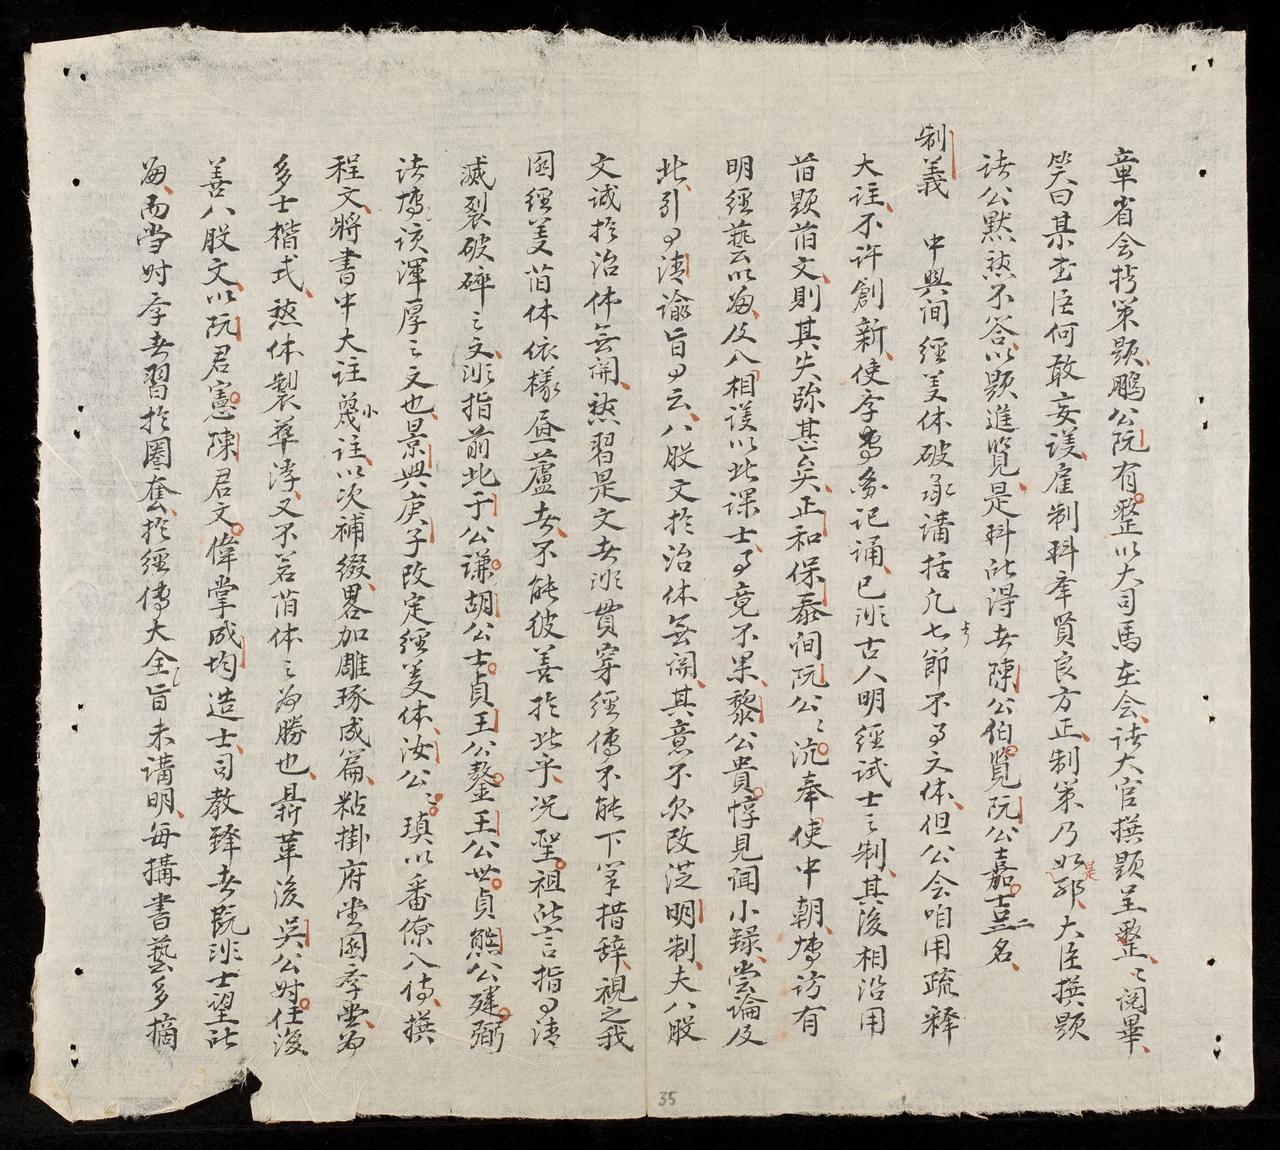 章省会拧策题鹏公阮有整以大司馬在会诸大官撰题呈整〻阅畢
笑曰某武臣何敢妄議雇制科牽賢良方正制策乃如是耶大臣撰题
诸公默然不答以题進覧是科所得者陳公伯覧阮公嘉士二名
制義 中興间經义体破承講括凡七節不为文体但公会咱用疏釋
大註不许創新使孝者為记誦已非古人明經试士之制其後相沿用
旧题旧文則其失弥甚矣正和保泰间阮公〻沆奉使中朝博访有
明經藝云以归及入相議以此课士事竟不果黎公貴惇見闻小錄尝論及
此引清谕旨云八股文於治体無関其意不久改従明制夫八股
文诚於治体無関然習是文者非貫穿經傳不能下筆措辞視之我
国經义旧体依樣画蘆者不能彼善於此乎况聖祖此言指清
滅裂破碎之文非指前此于公謙胡公士貞王公鏊王公世貞熊公建弼
诸博该渾厚之文也景興庚子改定經义体汝公〻瑱以番僚入侍撰
程文將書中大註及小註以次補綴畧加雕琢成篇粘掛府堂国孝堂為
多士楷式然体製萃渟又不若旧体之為勝也鼎革後吳公时任復
善八股文以阮君憲陳君文偉掌成均造士司教鋒者既非士望所
归而当时孝者習於圈套於經傳大全旨未講明每搆書藝多摘
35